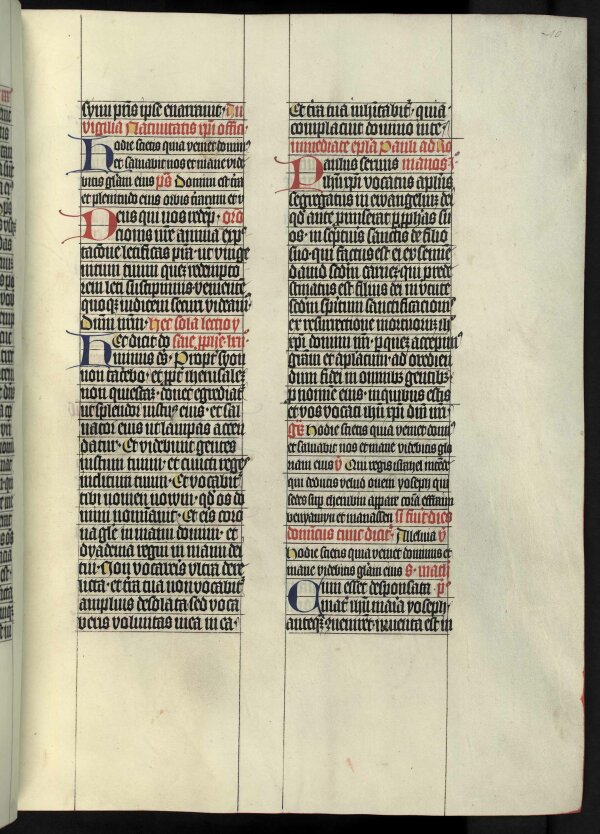 synu patris ipse enarravit · In
vigilia Nativitatis xpi offic
Hodie scietis quia veniet domin9
et salvabit nos et mane vide
bitis gliam eius ps Domini est tra
et plenitudo eius orbis trarum et v
Deus qui nos redep · oro
tionis nre annua exp
tacone letificas pra · ut vnige
nitum tuum quez redempto
rem leti suscipimus · venientez
quoqz iudicem securi videam9
dnm nrm · Nec sola lectio y
Hec dicit do saie prije · lxii
minus ds · Propt syon
non tacebo · et ppt iherusalez
non quiescaz · donec egrediat
ut splendor iustus eius · et sal
uator eius ut lampas accen
datur · Et videbunt gentes
iustum tuum · et cuncti reges
inclitum tuum · Et vocabit
tibi nomen novum · qd os do
mini nominavit · Et eis coro
na glie in manu domini · et
dyadema regni in manu dei
tui · Non vocaveris ultra dere
licta · et tra tua non vocabit
amplius desolata · sed voca
veris voluntas mea in ea ·
Et tra tua inhitabit · quia
complacuit domino in te ·
Paulus servus
ihu xpi vocatus aplus
segregatus in ewangelium dei
qd ante pmiserat p pphas su
os · in scripturis sanctis de filio
suo · qui factus est ei ex semine
david scdm carnez · qui prede
stinatus est filius dei in virtute
scdm spiritum sanctificacionis
ex resurrectione mortuorum ihu
xpi domini nri · p quez accepimus
gram et aplatum · ad obedien
dum fidei in omnibus gentibus
p nomine eius · in quibus estis
et vos vocati ihu xpi dni nri ·
Hodie scietis quia veniet domin9
et salvabit nos et mane videbitis glo
riam eius V Qui regis israhel intede
qui deducis velud ovem yoseph qui
sedes sup cherubin appare cora effraim
benyamyn et manassen si fuit dies
dominicus tunc dicat · Alleluia V
Hodie scietis quia veniet dominus et
mane videbitis gliam eius S. math
Cum esset desponsata
mat ihu maria yoseph
anteqz venirent · inventa est in